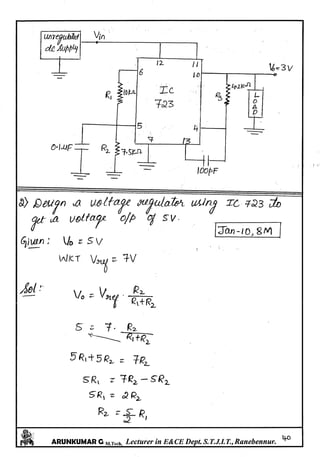 unregulated
dc supply
Vin
12
11
6
10
V₀=3V
R₁
10kΩ
IC
723
R₃
LOAD
5
4
0.1μF
R₂
7.5kΩ
7
13
100pF
2) Design a voltage regulator using IC 723 to
get a voltage o/p of 5V.
Jan-10, 8M
Given: V₀ = 5V
WKT Vref = 7V
Sol:
V₀ = Vref · R₂/(R₁+R₂)
5 = 7 · R₂/(R₁+R₂)
5R₁+5R₂ = 7R₂
5R₁ = 7R₂ − 5R₂
5R₁ = 2R₂
R₂ = 5/2 R₁
ARUNKUMAR G M.Tech, Lecturer in E&CE Dept. S.T.J.I.T., Ranebennur.
40